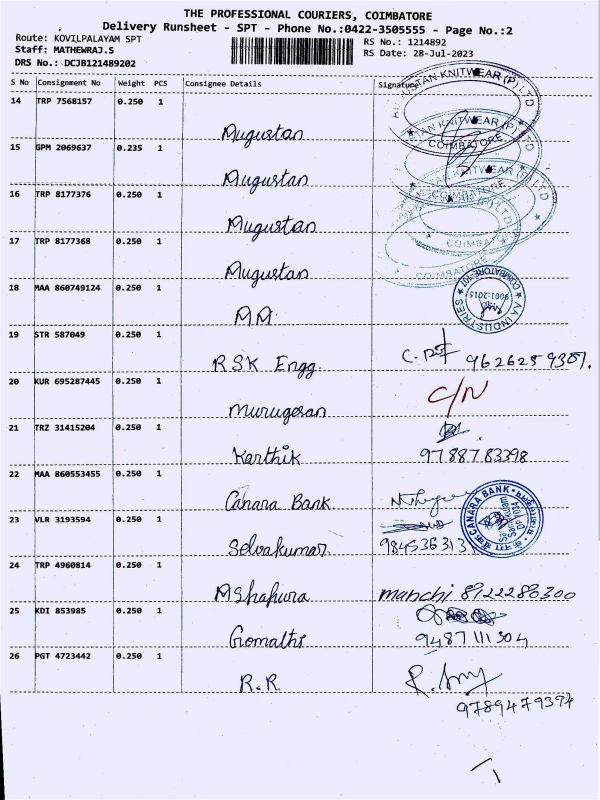 THE PROFESSIONAL COURIERS, COIMBATORE
Delivery Runsheet - SPT - Phone No.:0422-3505555 - Page No.:2
Route: KOVILPALAYAM SPT
Staff: MATHEWRAJ.S
DRS No.: DCJB121489202
RS No.: 1214892
RS Date: 28-Jul-2023
S No Consignment No Weight PCS Consignee Details Signature
14 TRP 7568157 0.250 1
Mugustan
15 GPM 2069637 0.235 1
Mugustan
16 TRP 8177376 0.250 1
Mugustan
17 TRP 8177368 0.250 1
Mugustan
KNITWEAR (P) LTD
COIMBATORE
KNITWEAR (P) LTD
COIMBATORE
COIMBATORE
18 MAA 860749124 0.250 1
AA
AA INDUSTRIES
9001:2015
19 STR 587049 0.250 1
RSK Engg.
20 KUR 695287445 0.250 1
Murugesan
C/N
21 TRZ 31415204 0.250 1
Karthik
9788783398
22 MAA 860553455 0.250 1
Canara Bank
CANARA BANK
23 VLR 3193594 0.250 1
Selvakumar
24 TRP 4960814 0.250 1
25 KDI 853985 0.250 1
Gomathi
9487111304
26 PGT 4723442 0.250 1
R.R
9789479394